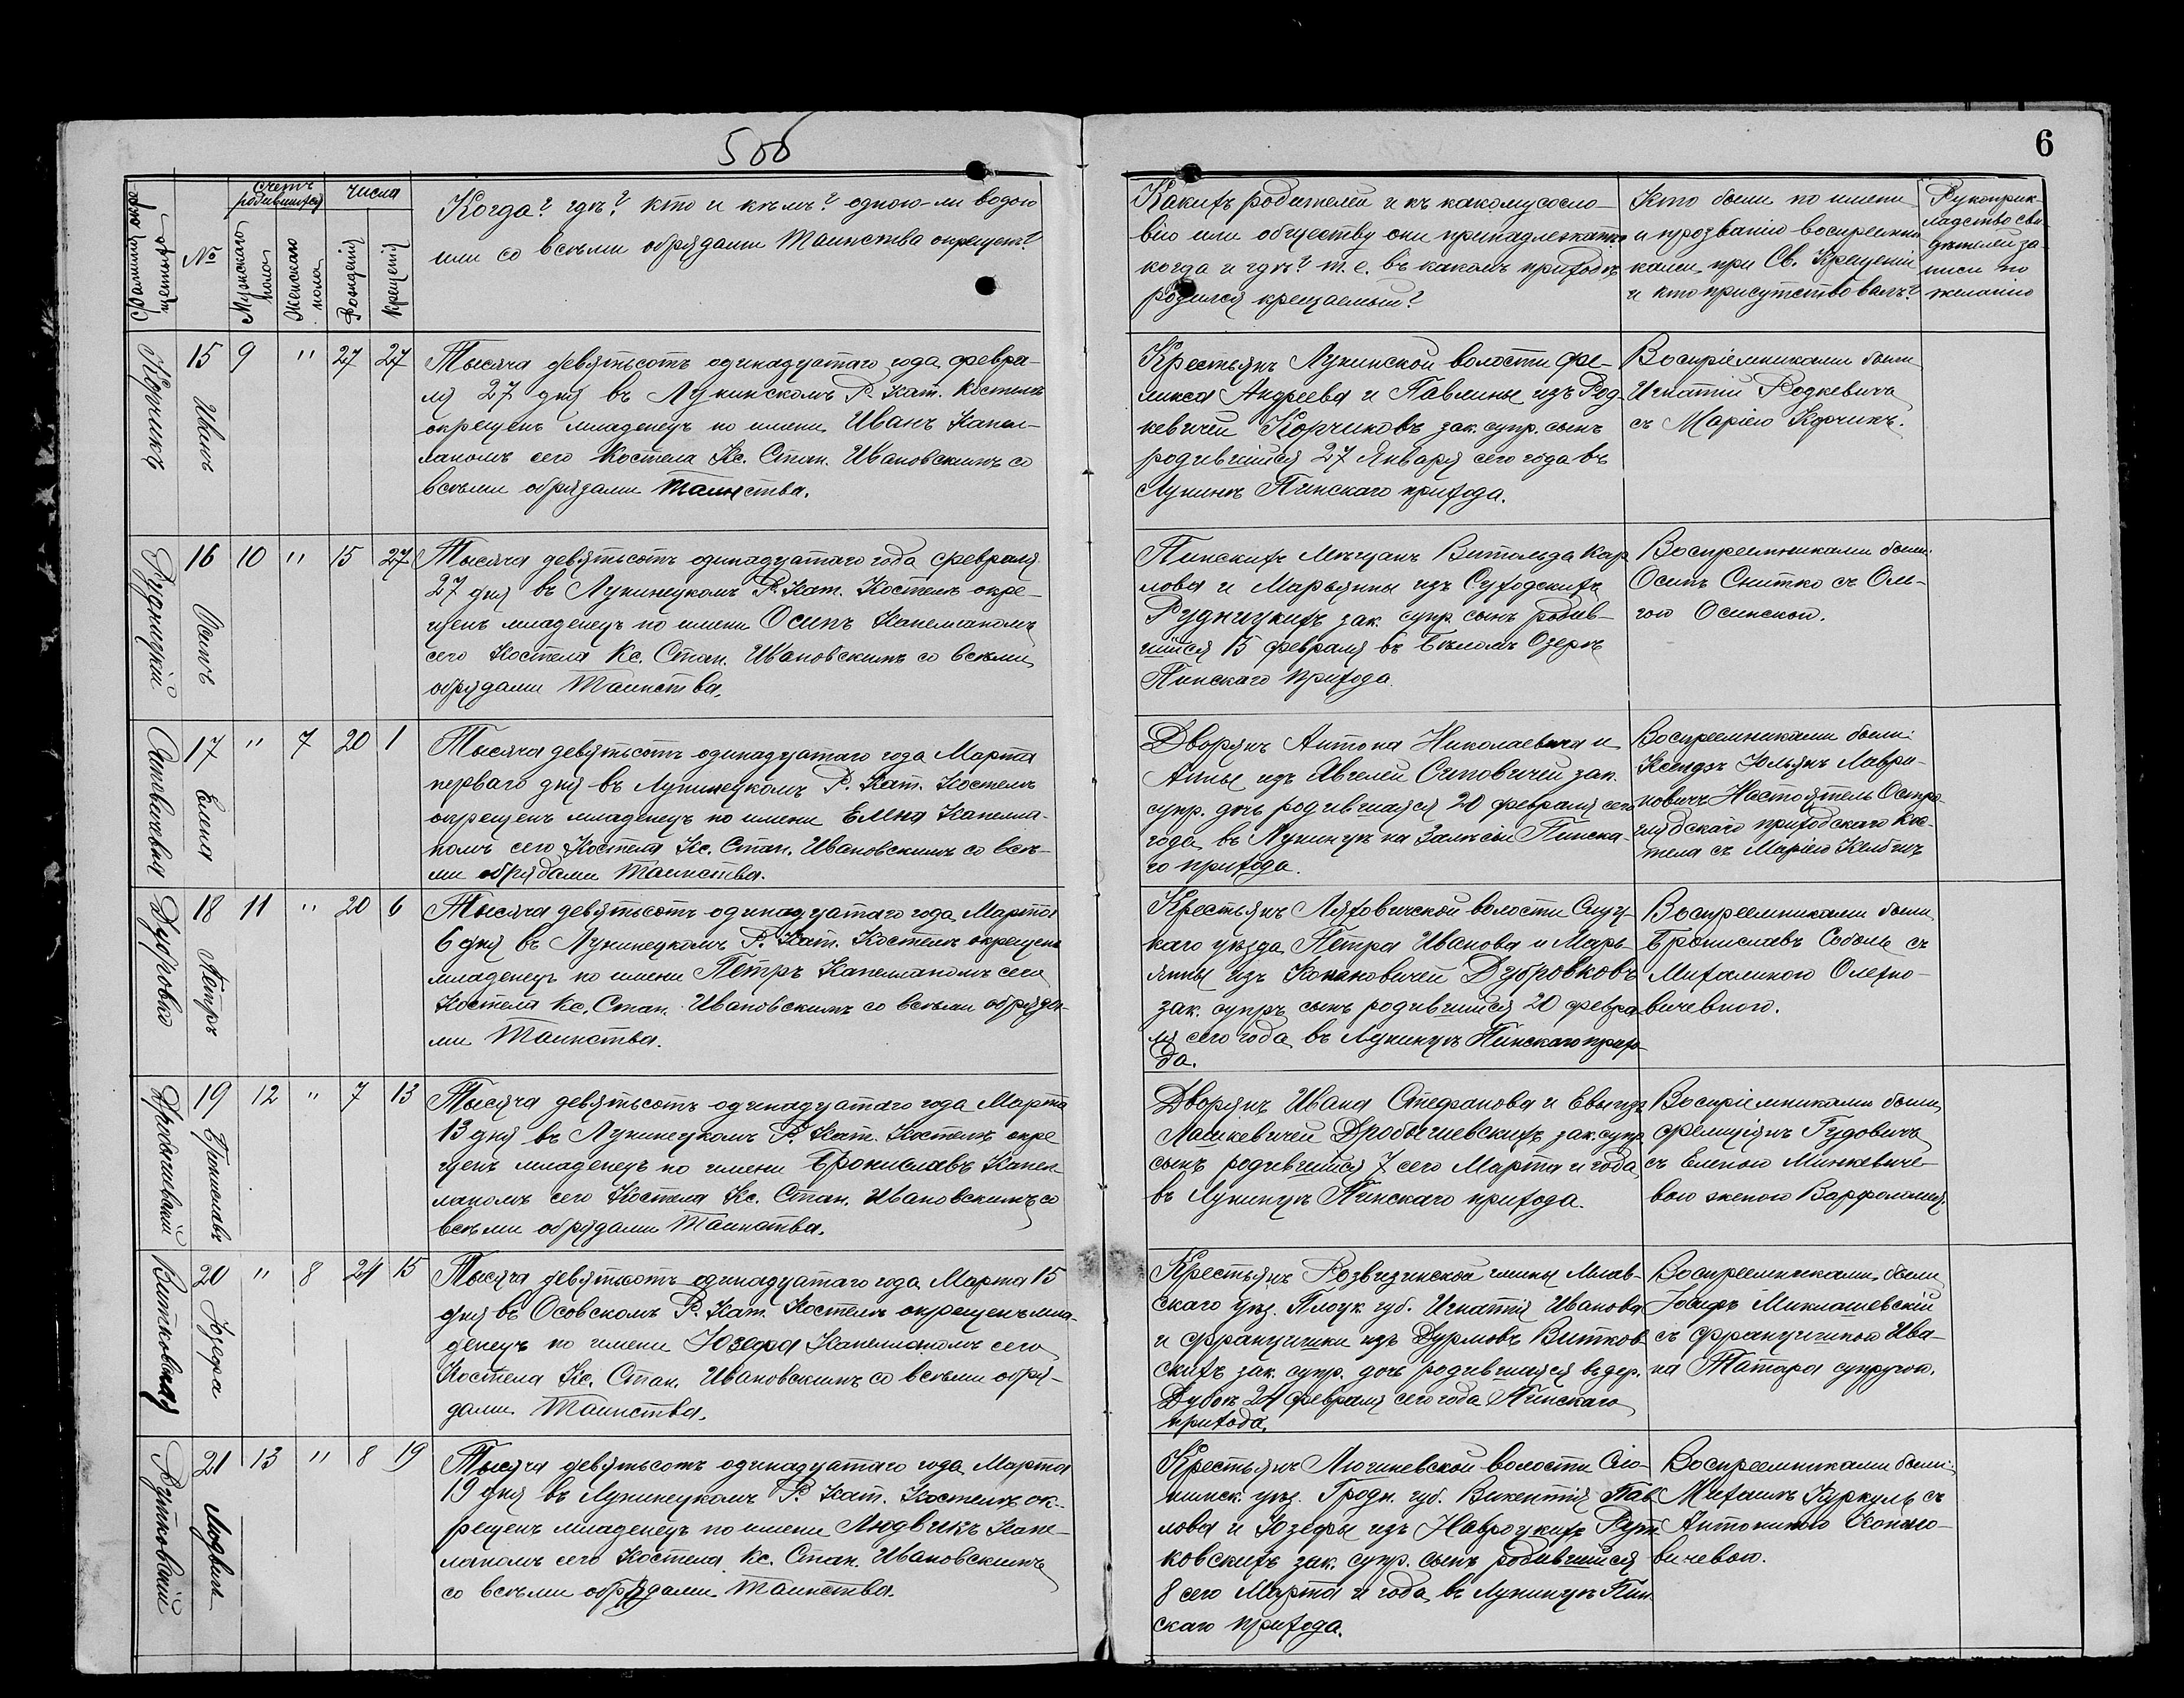 506
6
Фамилія окре-
щеннаго
№
Счетъ
родившихся
Мужскаго
пола
Женскаго
пола
Числа
Рожденія
Крещенія
Когда? гдѣ? кто и кѣмъ? одною-ли водою
или со всѣми обрядами Таинства окрещенъ?
Какихъ родителей и къ какому сосло-
вію или обществу они принадлежатъ,
когда и гдѣ? т. е. въ какомъ приходѣ
родился крещаемый?
Кто были по имени
и прозванію воспреемни-
ками при Св. Крещеніи
и кто присутствовалъ?
Рукоприк-
ладство сви-
дѣтелей за-
писи по
желанію
Корчикъ
15 Иванъ
9 " 27 27
Тысяча девятьсотъ одинадцатаго года февра-
ля 27 дня въ Лунинскомъ Р. Кат. Костелѣ
окрещенъ младенецъ по имени Иванъ Капел-
ланомъ сего Костела Кс. Стан. Ивановскимъ со
всѣми обрядами Таинства.
Крестьянъ Лунинской волости Фе-
ликса Андреева и Павлины изъ Род-
кевичей Корчиковъ зак. супр. сынъ
родившійся 27 Января сего года въ
Лунинѣ Пинскаго прихода.
Воспріемниками были
Игнатій Родкевичъ
съ Маріею Корчикъ.
Рудницкій
16 Осипъ
10 " 15 27
Тысяча девятьсотъ одинадцатаго года февраля
27 дня въ Лунинецкомъ Р. Кат. Костелѣ окре-
щенъ младенецъ по имени Осипъ Капелланомъ
сего Костела Кс. Стан. Ивановскимъ со всѣми
обрядами Таинства.
Пинскихъ Мѣщанъ Витольда Кар-
лова и Марьянны изъ Суходскихъ
Рудницкихъ зак. супр. сынъ родив-
шійся 15 февраля въ Бѣломъ Озерѣ
Пинскаго прихода.
Воспреемниками были:
Осипъ Снитко съ Оль-
гою Осинской.
17 Елена
" 7 20 1
Тысяча девятьсотъ одинадцатаго года Марта
перваго дня въ Лунинецкомъ Р. Кат. Костелѣ
окрещенъ младенецъ по имени Елена Капелла-
номъ сего Костела Кс. Стан. Ивановскимъ со всѣ-
ми обрядами Таинства.
Дворянъ Антона Николаевича и
Анны изъ зак.
супр. дочь родившаяся 20 февраля сего
года въ Лунинцѣ на Залѣсьи Пинска-
го прихода.
Воспреемниками были:
Ксендзъ Юльянъ Лаври-
новичъ Настоятель
приходскаго Кос-
тела съ Маріею
Дубровко
18 Петръ
11 " 20 6
Тысяча девятьсотъ одинадцатаго года Марта
6 дня въ Лунинецкомъ Р. Кат. Костелѣ окрещенъ
младенецъ по имени Петръ Капелланомъ сего
Костела Кс. Стан. Ивановскимъ со всѣми обряда-
ми Таинства.
Крестьянъ Ляховичской волости Слуц-
каго уѣзда Петра Иванова и Марь-
янны изъ Дубровковъ
зак. супр. сынъ родившійся 20 февра-
ля сего года въ Лунинцѣ Пинскаго прихо-
да.
Воспреемниками были
Брониславъ Соболь съ
Михалиною Олехно-
вичевною.
Дробышевскій
19 Брониславъ
12 " 7 13
Тысяча девятьсотъ одинадцатаго года Марта
13 дня въ Лунинецкомъ Р. Кат. Костелѣ окре-
щенъ младенецъ по имени Брониславъ Капел-
ланомъ сего Костела Кс. Стан. Ивановскимъ со
всѣми обрядами Таинства.
Дворянъ Ивана Стефанова и Евы изъ
Лашкевичей Дробышевскихъ зак. супр.
сынъ родившійся 7 сего Марта и года
въ Лунинцѣ Пинскаго прихода.
Воспріемниками были
Фелиціянъ Гудовичъ
съ Еленою Минкевиче-
вою женою Варфоломея.
Витковская
20 Юзефа
" 8 24 15
Тысяча девятьсотъ одинадцатаго года Марта 15
дня въ Осовскомъ Р. Кат. Костелѣ окрещенъ мла-
денецъ по имени Юзефа Капелланомъ сего
Костела Кс. Стан. Ивановскимъ со всѣми обря-
дами Таинства.
Крестьянъ Розвизинской гмины Млав-
скаго уѣз. Плоцк. губ. Игнатія Иванова
и Францишки изъ Дурмовъ Витков-
скихъ зак. супр. дочь родившаяся въ дер.
Дубокъ 24 февраля сего года Пинскаго
прихода.
Воспреемниками были
Іосифъ Миклашевскій
съ Францишкою Ива-
на Татара супругою.
Рутковскій
21 Людвикъ
13 " 8 19
Тысяча девятьсотъ одинадцатаго года Марта
19 дня въ Лунинецкомъ Р. Кат. Костелѣ ок-
рещенъ младенецъ по имени Людвикъ Капе-
ланомъ сего Костела Кс. Стан. Ивановскимъ
со всѣми обрядами Таинства.
Крестьянъ волости Сло-
нимск. уѣз. Гродн. губ. Викентія Пав-
лова и Юзефы изъ Навроцкихъ Рут-
ковскихъ зак. супр. сынъ родившійся
8 сего Марта и года въ Лунинцѣ Пин-
скаго прихода.
Воспреемниками были:
Михаилъ Куркуль съ
Антониною Конано-
вичевою.